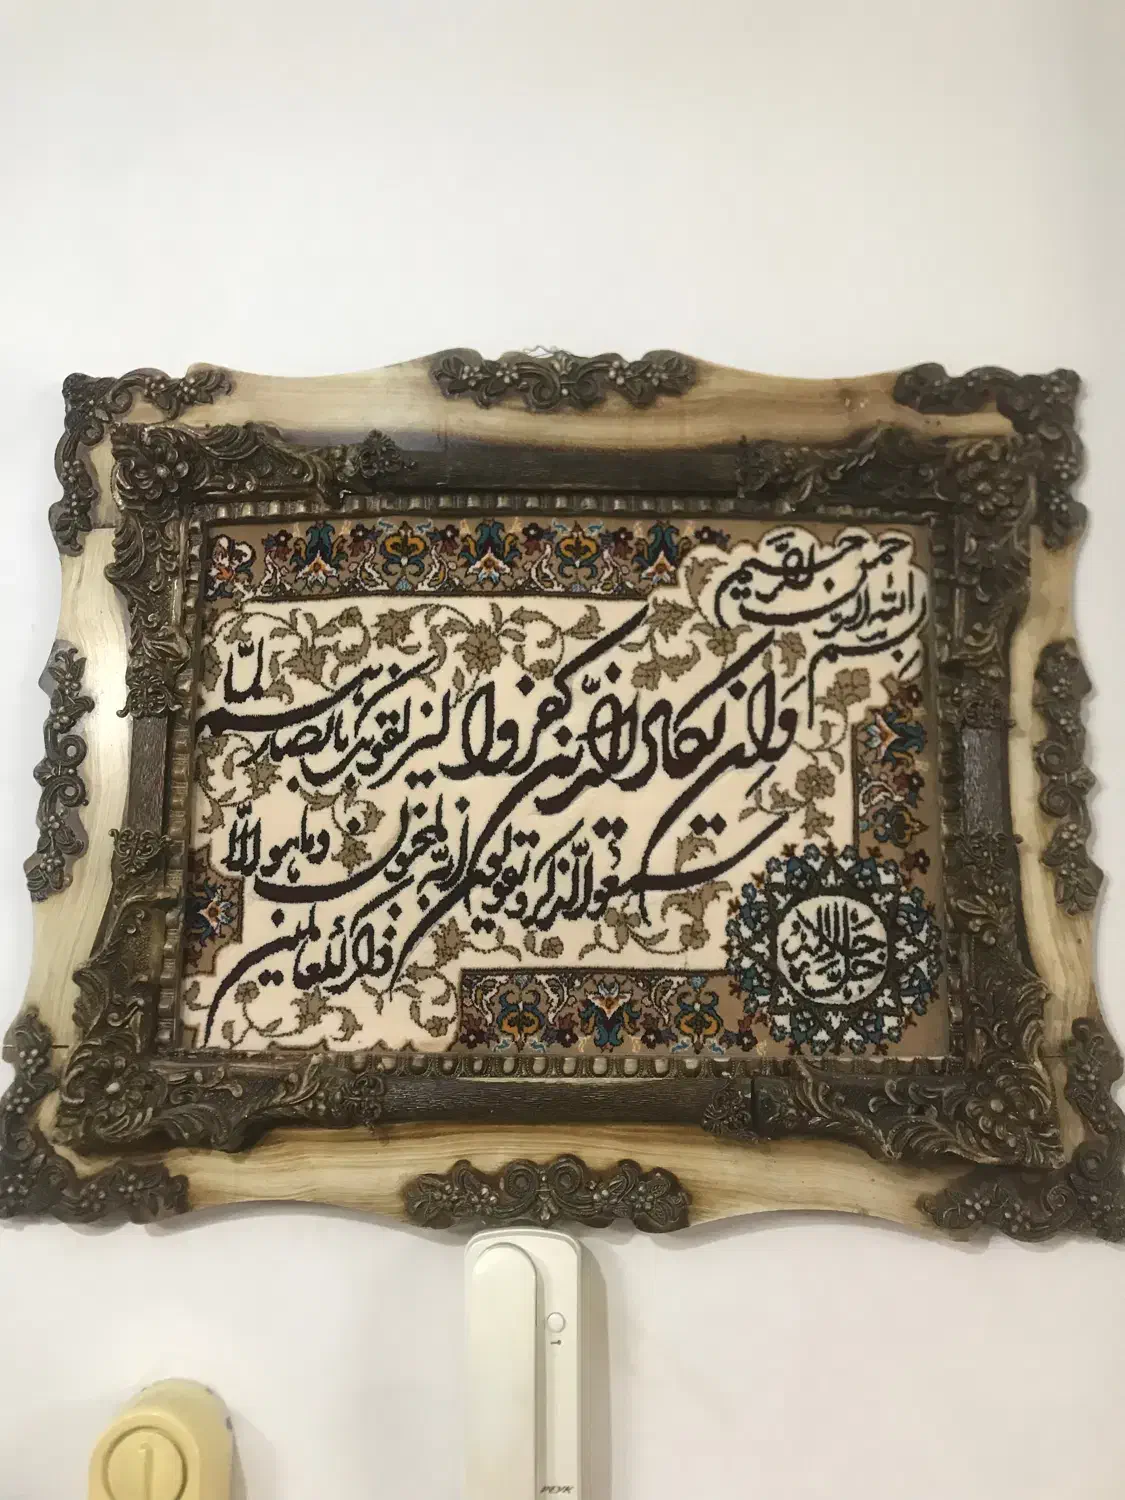 بسم الله الرحمن الرحیم
وَاِن یَکادُ الَّذینَ کَفَروا لیزلقونک بابصارهم لمّا
سمعوا الذّکرَ و یقولون انّه لمجنون و ما هو الّا
ذکر للعالمین
PEYK